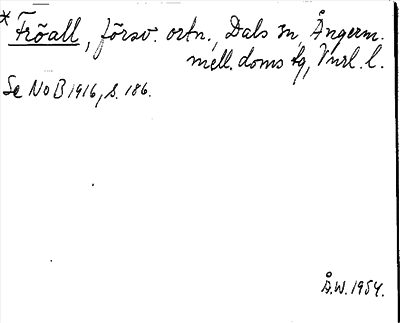 * Fröall, försv. ortn., Dals sn, Ångerm.
mell. doms tg, Vnrl. l.
Se NoB 1916, s. 186.
Å.W. 1954.